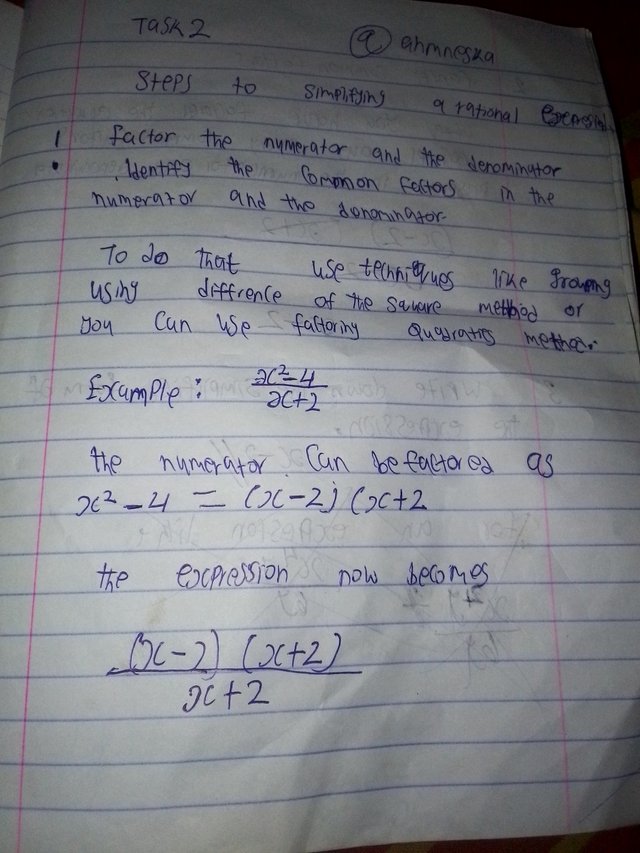 Task 2 @ ahmneska
Steps to simplifying a rational
1 factor the numerator and the denominator
. Identify the Common factors in the
numerator and the donominator
To do that use techniques like
using diffrence of the square method or
you Can use factoring Quadratics
Example: x²-4/x+2
the numerator. Can be factored as
x² - 4 = (x-2) (x+2
the expression now becomes
(x-2) (x+2)
x+2